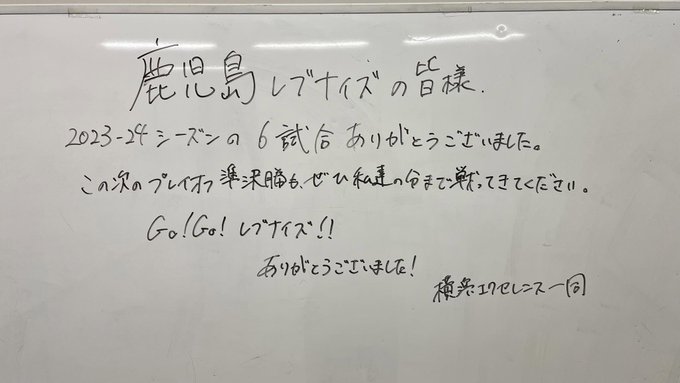 鹿児島レブナイズの皆様.
2023-24シーズンの6試合ありがとうございました。
この次のプレイオフ準決勝も、ぜひ私達の分まで戦ってきてください。
Go!Go!レブナイズ!!
ありがとうございました!
横浜エクセレンス一同